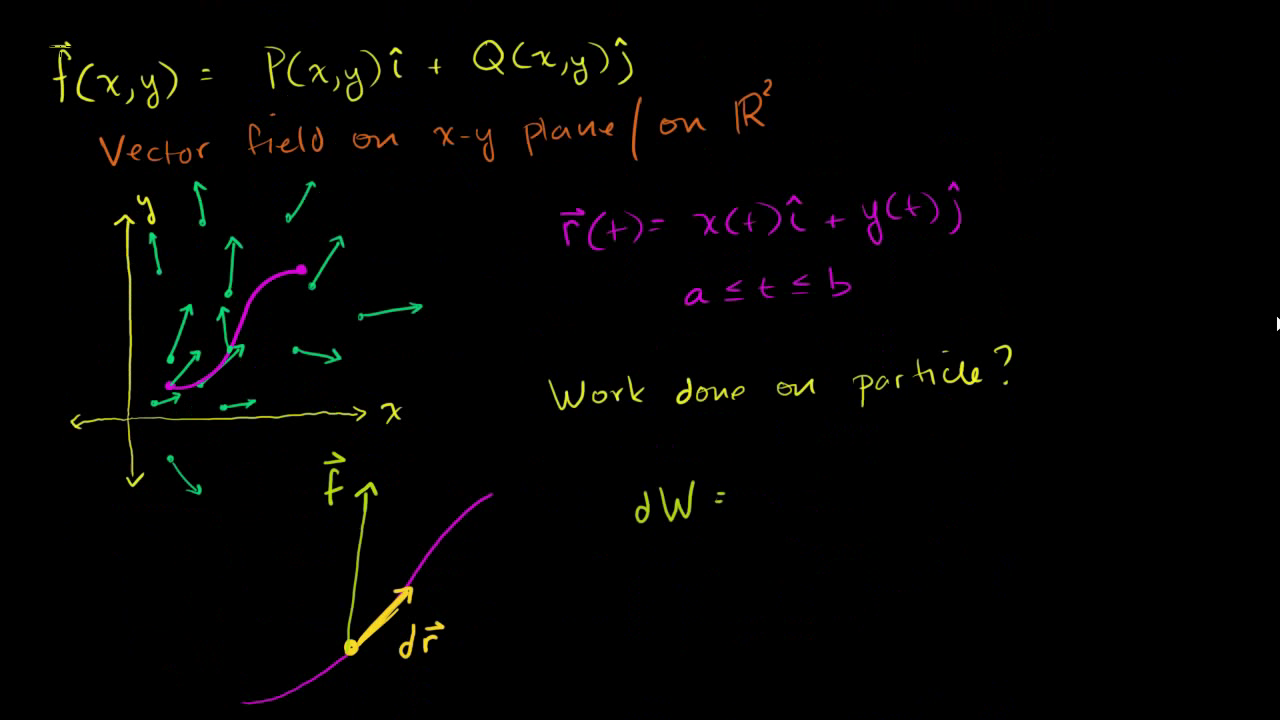 f⃗(x,y) = P(x,y)î + Q(x,y)ĵ
Vector field on x-y plane/on ℝ²
y
r⃗(t) = x(t)î + y(t)ĵ
a ≤ t ≤ b
Work done on particle?
x
f⃗
dW =
dr⃗